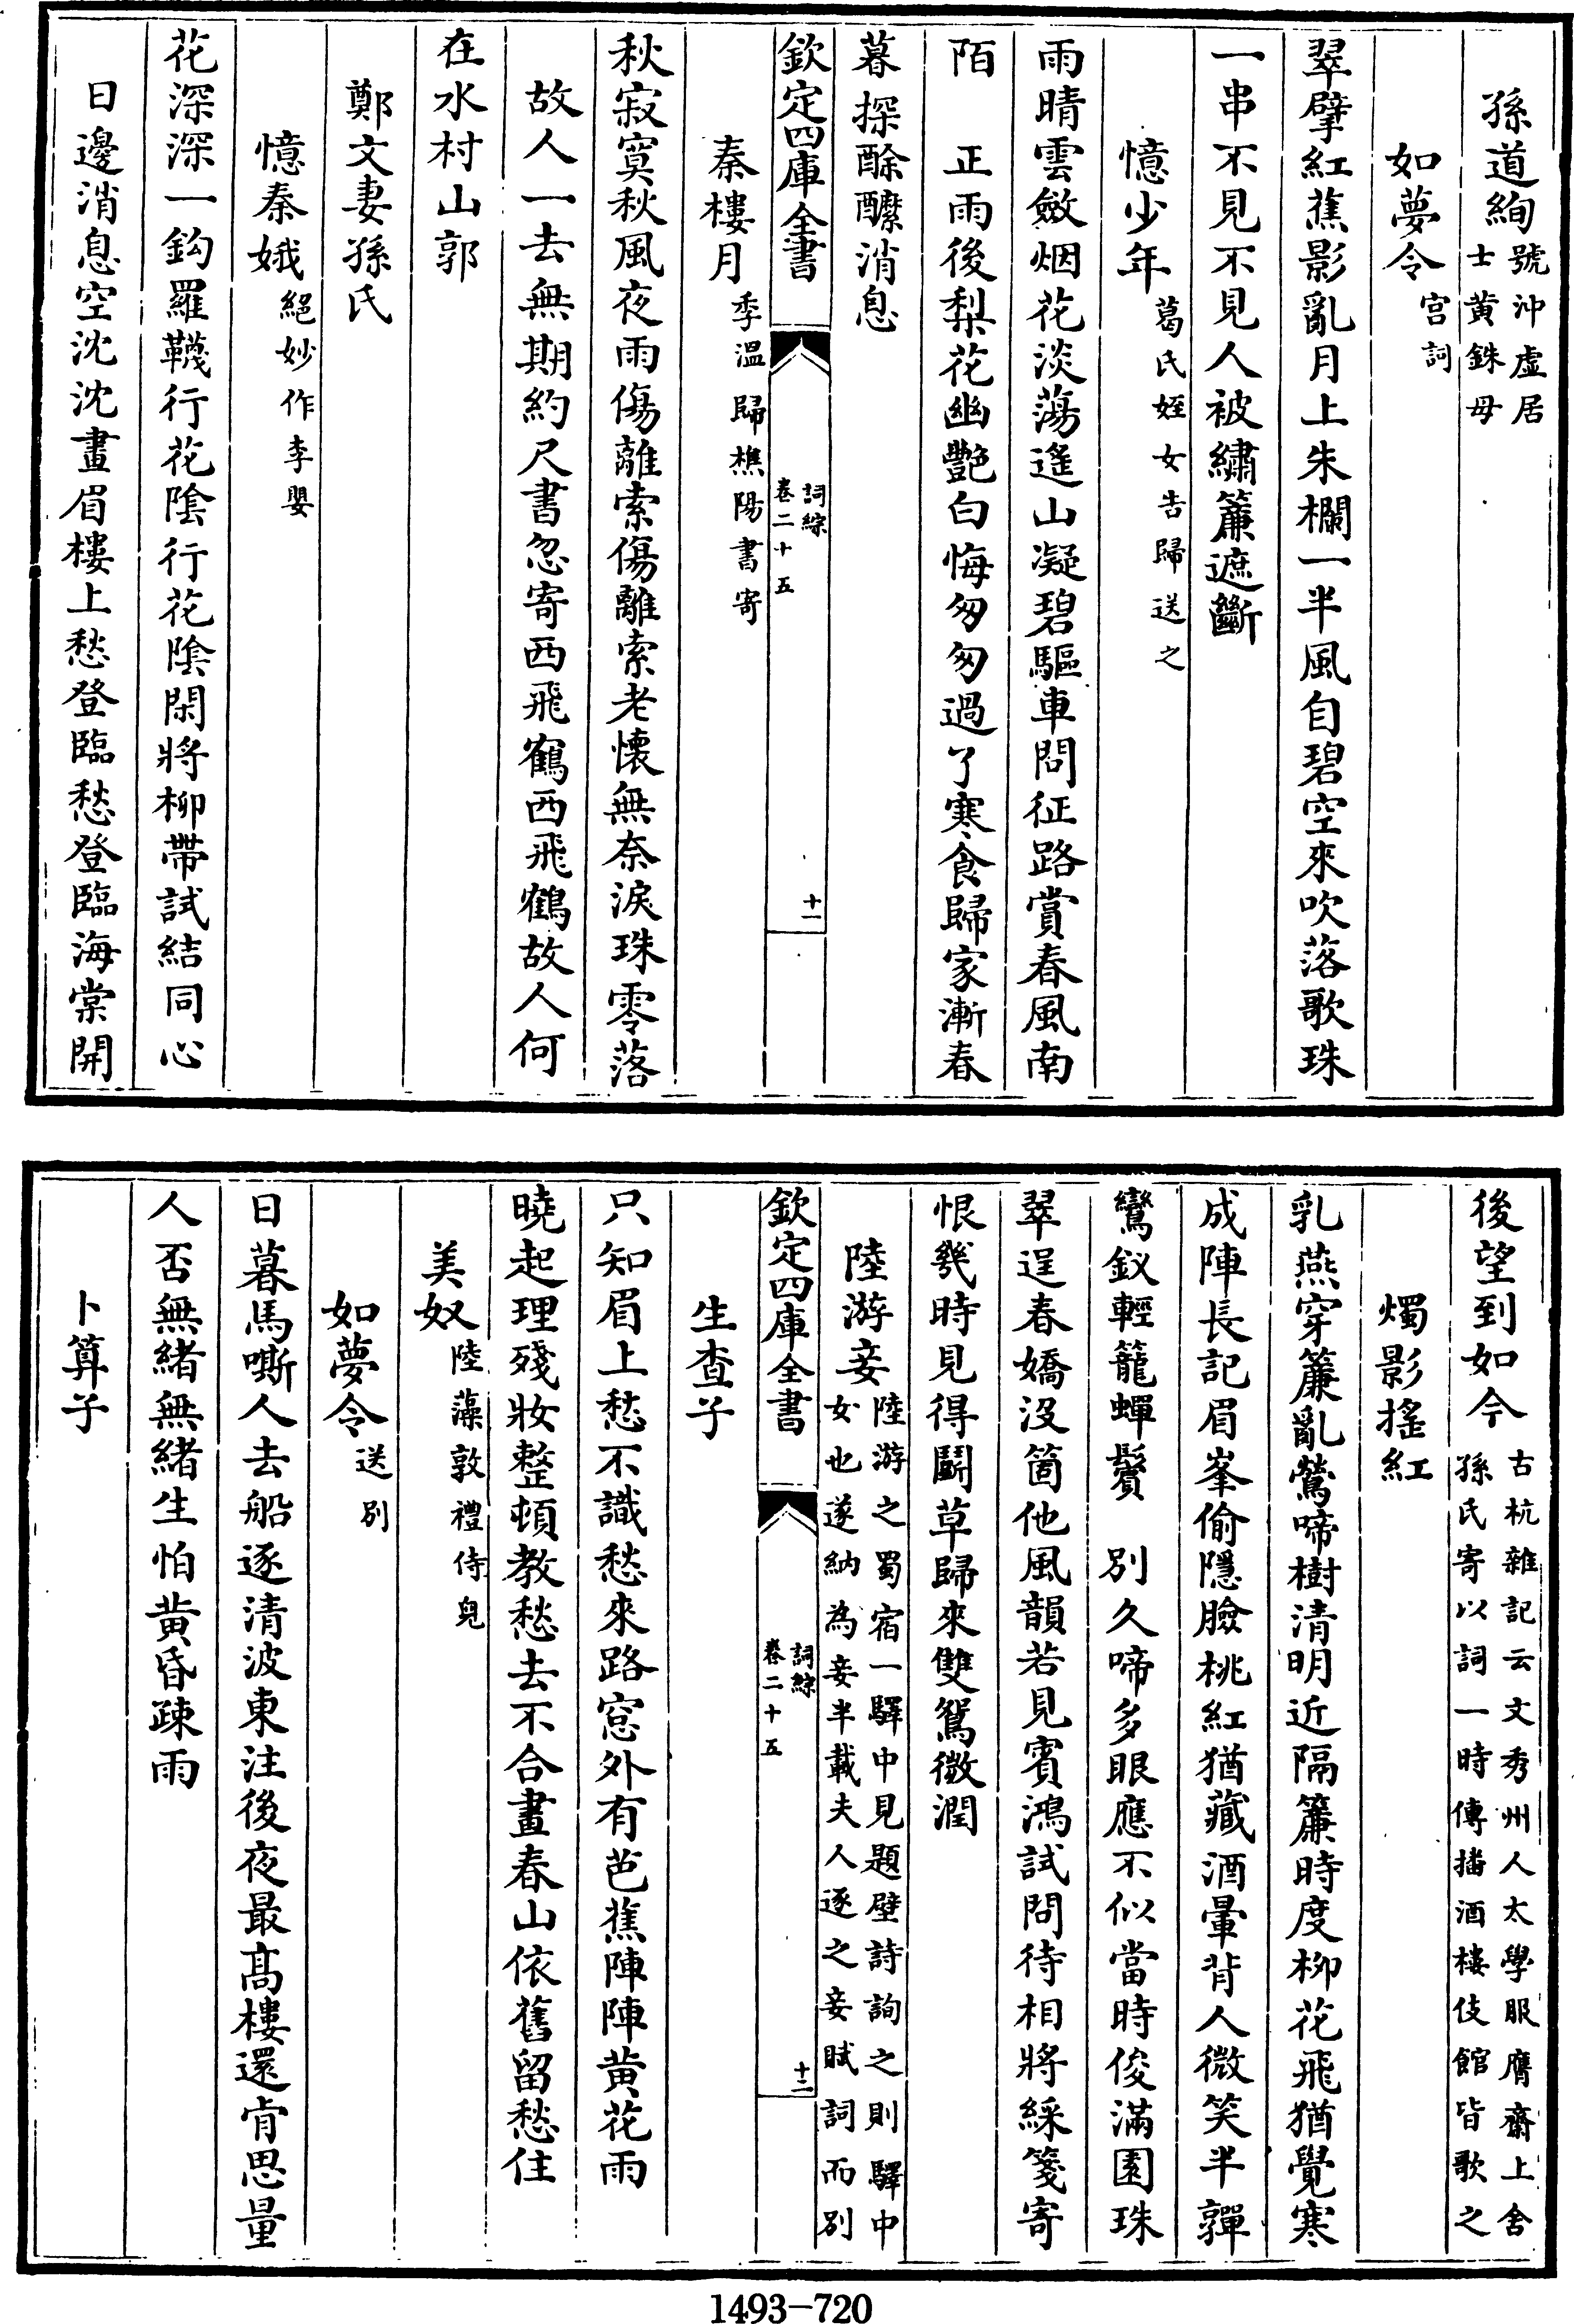 孫道絢號沖虛居士黄銖母
如夢令宫詞
翠擘紅蕉影亂月上朱欄一半風自碧空來吹落歌珠
一串不見不見人被繡簾遮斷
憶少年葛氏姪女告歸送之
雨晴雲斂烟花淡蕩遙山凝碧驅車問征路賞春風南
陌　正雨後梨花幽艷白悔匆匆過了寒食歸家漸春
暮探酴醾消息
欽定四庫全書　詞綜卷二十五　十一
秦樓月季溫歸樵陽書寄
秋寂寞秋風夜雨傷離索傷離索老懷無奈淚珠零落
故人一去無期約尺書忽寄西飛鶴西飛鶴故人何
在水村山郭
鄭文妻孫氏
憶秦娥絕妙作李嬰
花深深一鈎羅韈行花陰行花陰閑將柳帶試結同心
日邊消息空沈沈畫眉樓上愁登臨愁登臨海棠開
後望到如今古杭雜記云文秀州人太學服膺齋上舍孫氏寄以詞一時傳播酒樓伎館皆歌之
燭影搖紅
乳燕穿簾亂鶯啼樹清明近隔簾時度柳花飛猶覺寒
成陣長記眉峯偷隱臉桃紅猶藏酒暈背人微笑半嚲
鸞釵輕籠蟬鬢　別久啼多眼應不似當時俊滿園珠
翠逞春嬌沒箇他風韻若見賓鴻試問待相將綵箋寄
恨幾時見得鬭草歸來雙鴛微潤
陸游妾陸游之蜀宿一驛中見題壁詩詢之則驛中女也遂納為妾半載夫人逐之妾賦詞而別
欽定四庫全書　詞綜卷二十五　十二
生查子
只知眉上愁不識愁來路窓外有芭蕉陣陣黄花雨
曉起理殘妝整頓教愁去不合畫春山依舊留愁住
美奴陸藻敦禮侍兒
如夢令送別
日暮馬嘶人去船逐清波東注後夜最髙樓還肯思量
人否無緒無緒生怕黄昏疎雨
卜算子
1493-720